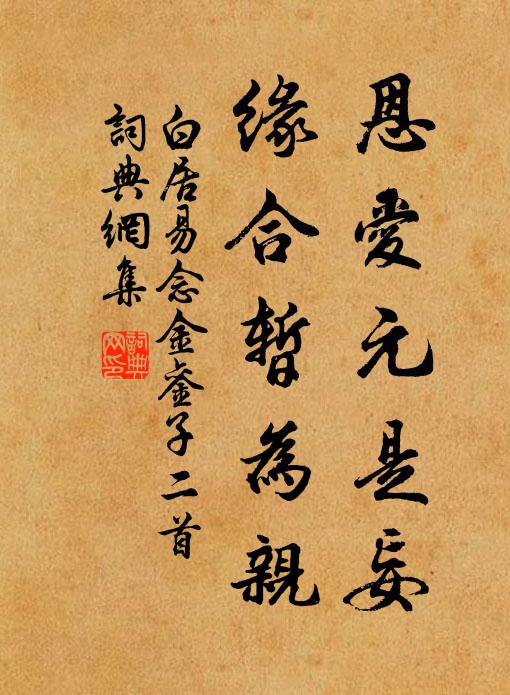 恩愛元是妄
緣合暫為親
白居易念金鑾子二首
詞典網集
詞典網印